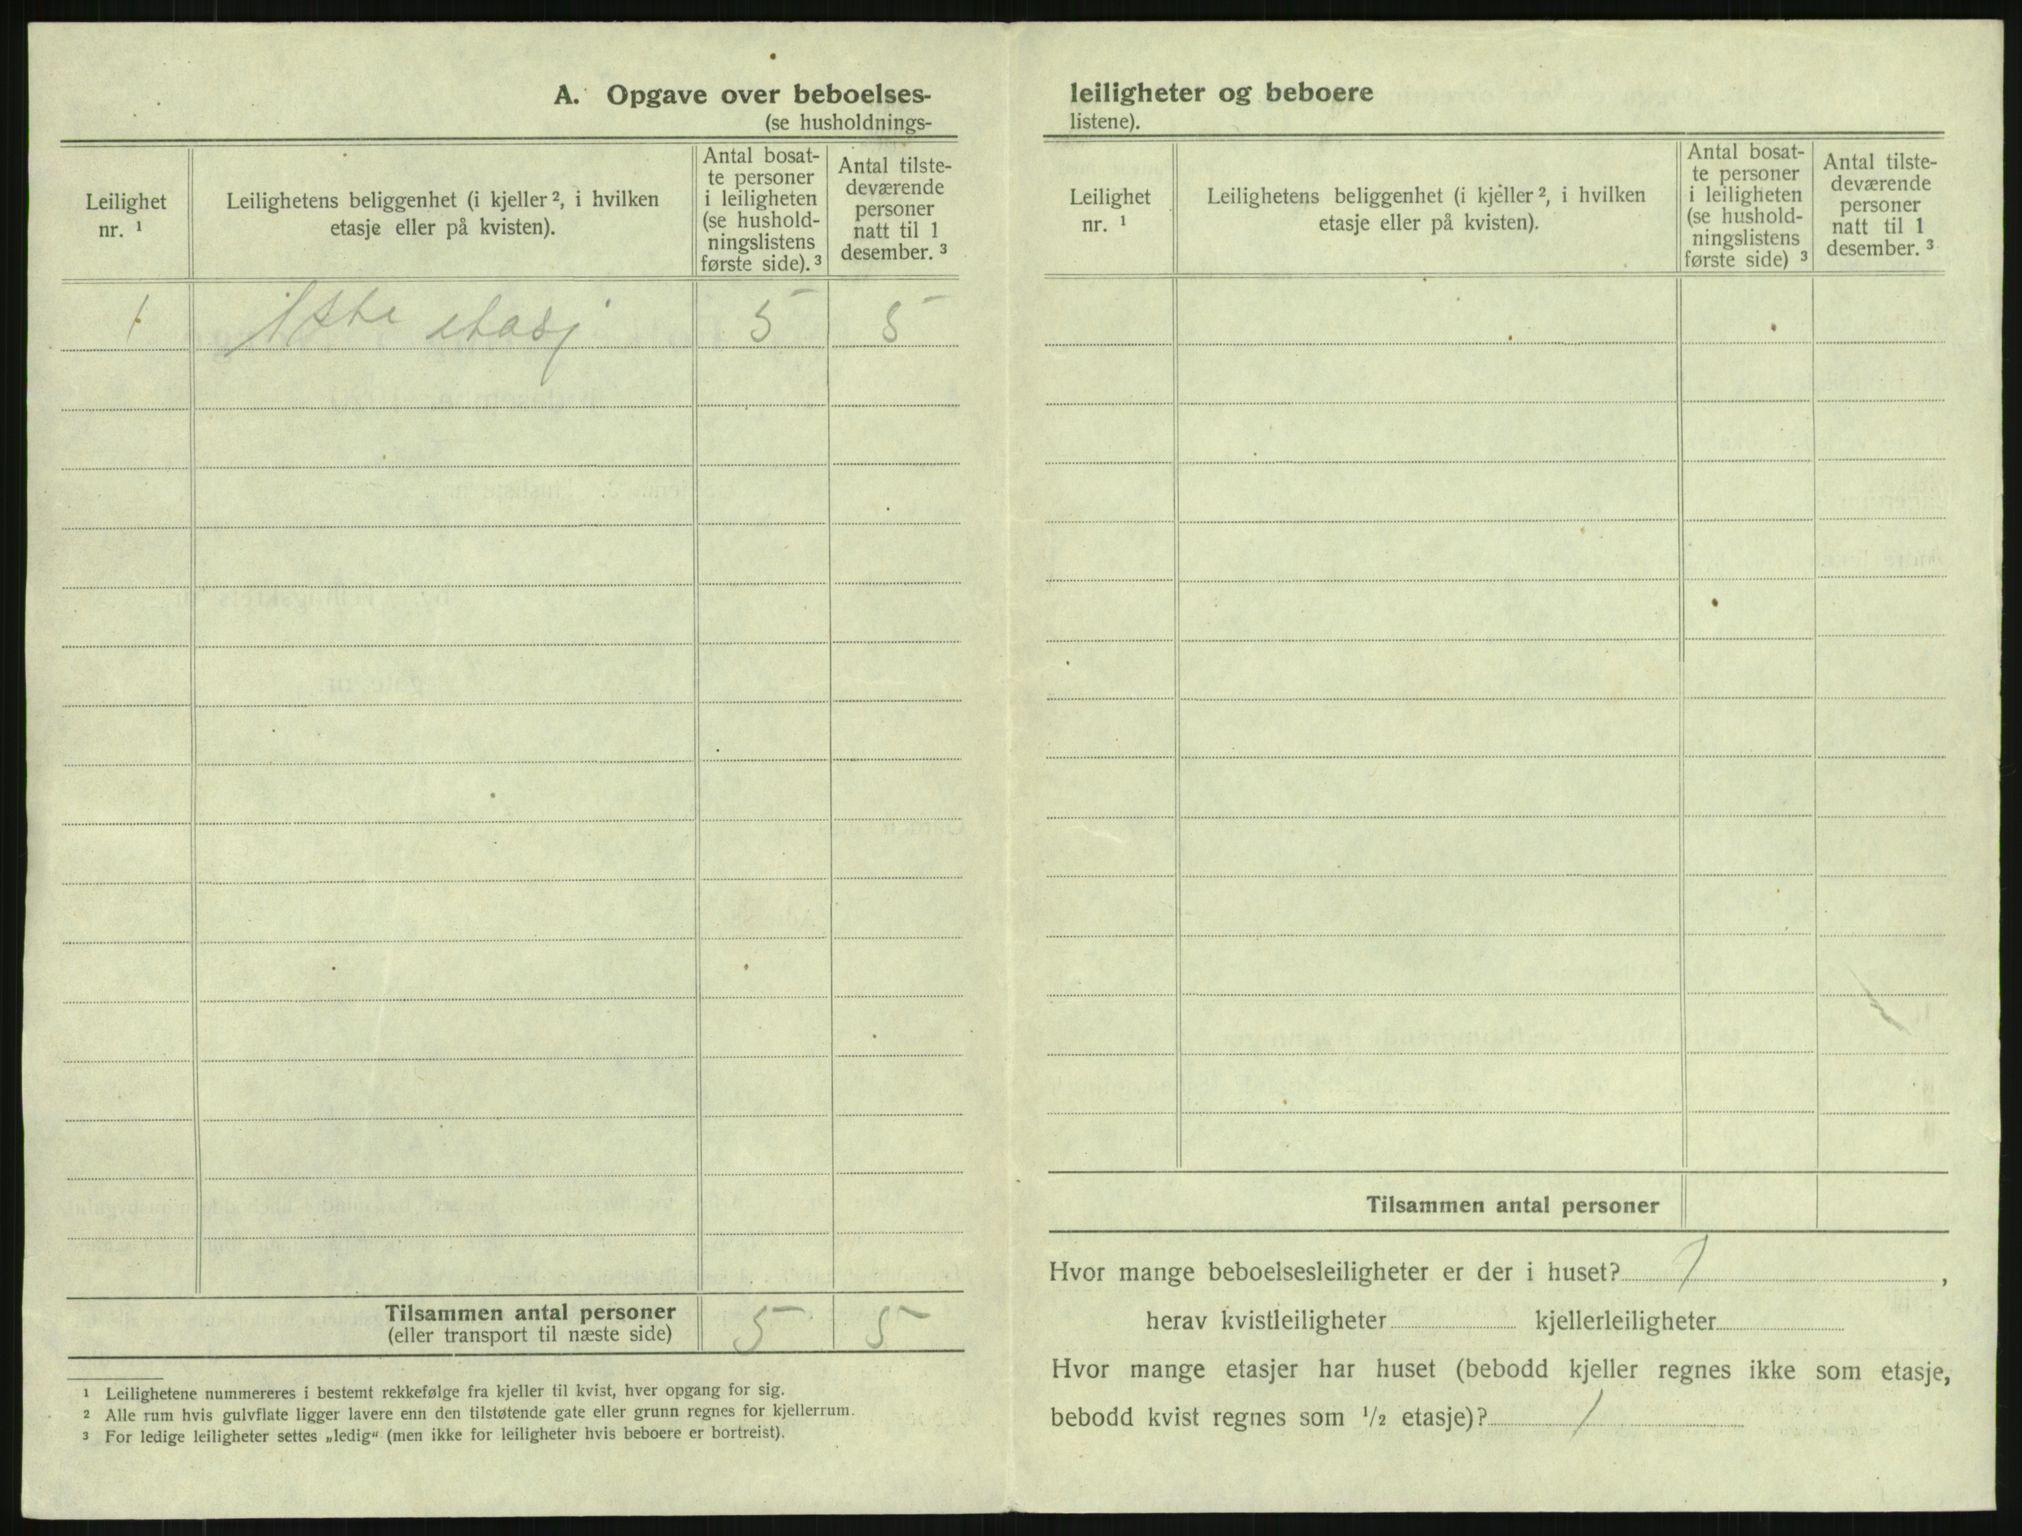 A. Opgave over beboelses-
(se husholdnings-
Leilighet
nr. ¹
Leilighetens beliggenhet (i kjeller ², i hvilken
etasje eller på kvisten).
Antal bosat-
te personer
i leiligheten
(se hushold-
ningslistens
første side). ³
Antal tilste-
deværende
personer
natt til 1
desember. ³
1 1ste etasj 5 5
Tilsammen antal personer 5 5
(eller transport til næste side)
¹ Leilighetene nummereres i bestemt rekkefølge fra kjeller til kvist, hver opgang for sig.
² Alle rum hvis gulvflate ligger lavere enn den tilstøtende gate eller grunn regnes for kjellerrum.
³ For ledige leiligheter settes „ledig“ (men ikke for leiligheter hvis beboere er bortreist).
leiligheter og beboere
listene).
Leilighet
nr. ¹
Leilighetens beliggenhet (i kjeller ², i hvilken
etasje eller på kvisten).
Antal bosat-
te personer
i leiligheten
(se hushold-
ningslistens
første side) ³
Antal tilste-
deværende
personer
natt til 1
desember. ³
Tilsammen antal personer
Hvor mange beboelsesleiligheter er der i huset? 1 ,
herav kvistleiligheter kjellerleiligheter
Hvor mange etasjer har huset (bebodd kjeller regnes ikke som etasje,
bebodd kvist regnes som ½ etasje)? 1